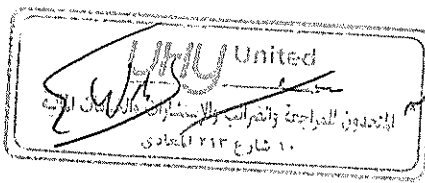 UHY United
المتحدون للمراجعة والضرائب والاستشارات
١٠ شارع ٢١٣ المعادى